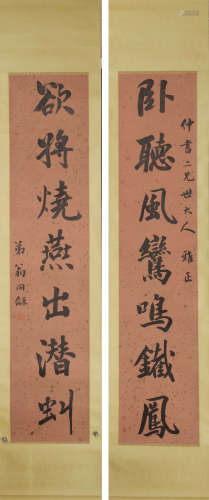 仲書二兄世大人 雅正
臥聽風鸞鳴鐵鳳
欲將燒燕出潛虯
弟翁同龢